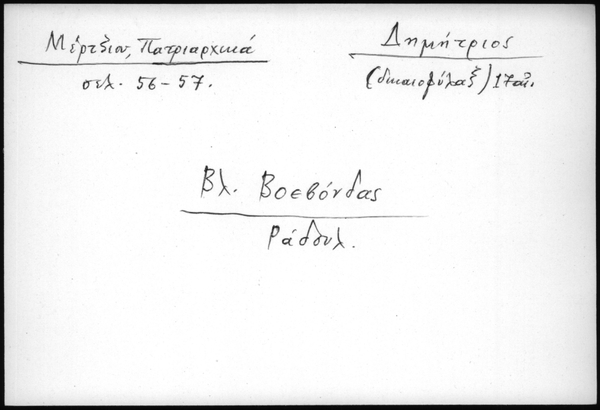 Μέρτζιου, Πατριαρχικά
σελ. 56-57.
Δημήτριος
(δικαιοφύλαξ) 17 αἰ.
Βλ. Βοεβόνδας
Ράδουλ.